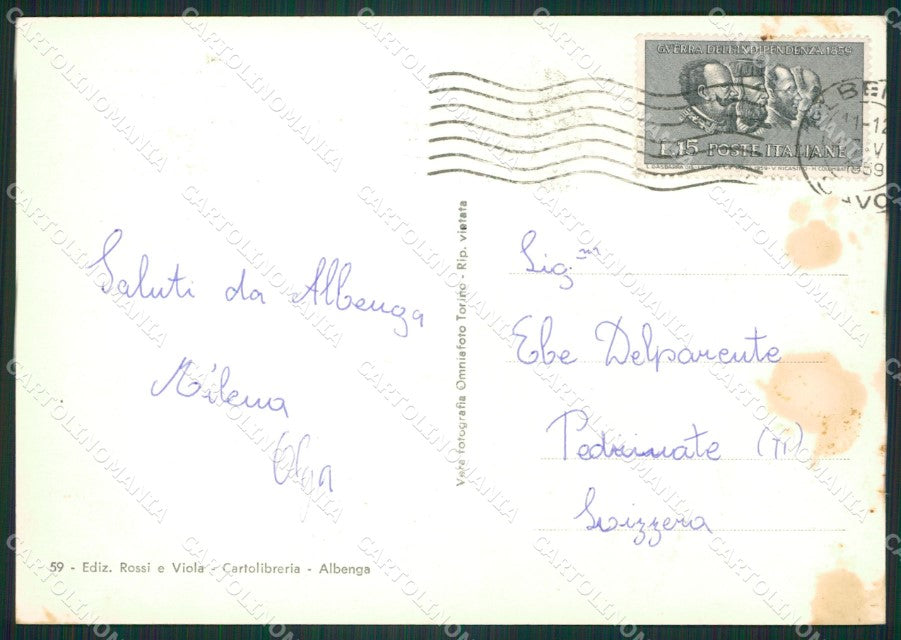 GVERRA DELL'INDIPENDENZA 1859
L.15 POSTE ITALIANE
11-12
V
1959
Saluti da Albenga
Milena
Olga
Vera fotografia Omniafoto Torino - Rip. vietata
Sig.na
Ebe Delparente
Pedrinate (TI)
Svizzera
59 - Ediz. Rossi e Viola - Cartolibreria - Albenga
CARTOLINOMANIA